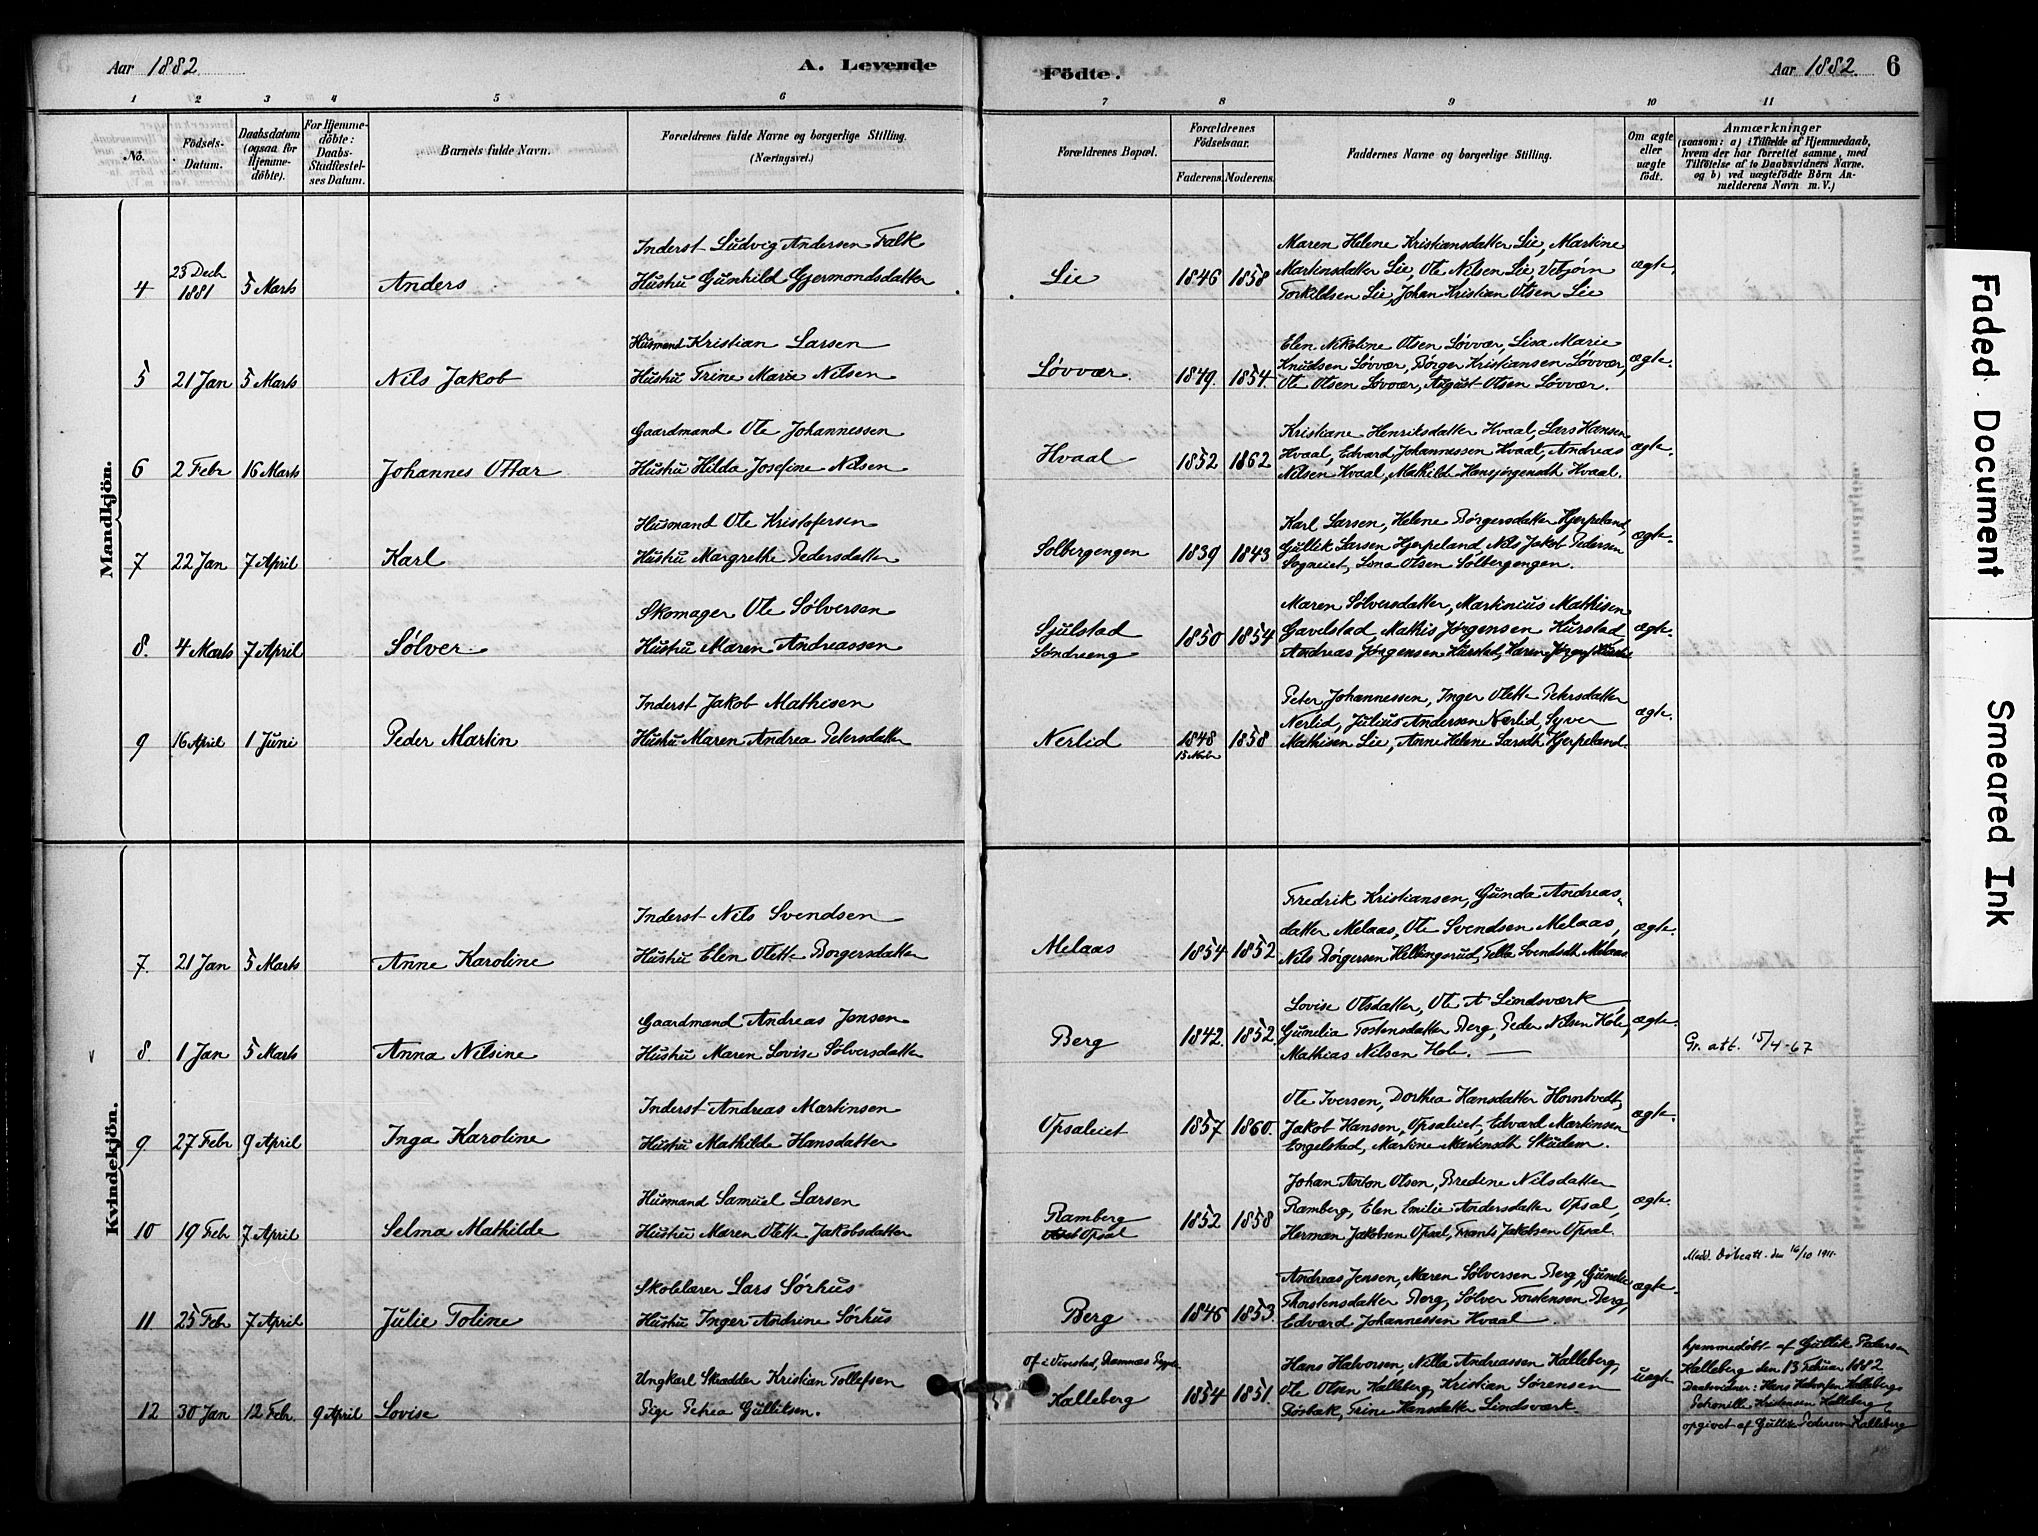 Aar 1882.
A. Levende
Födte.
Aar 1882. 6
1 2 3 4 5 6 7 8 9 10 11
No.
Födsels-
Datum.
Daabsdatum
(ogsaa for
Hjemme-
döbte).
For Hjemme-
döbte:
Daabs-
Stadfæstel-
ses Datum.
Barnets fulde Navn.
Forældrenes fulde Navne og borgerlige Stilling.
(Næringsvei.)
Forældrenes Bopæl.
Forældrenes
Födselsaar.
Faderens. Moderens.
Faddernes Navne og borgerlige Stilling.
Om ægte
eller
uægte
födt.
Anmærkninger
(saasom: a) i Tilfælde af Hjemmedaab,
hvem der har forrettet samme, med
Tilföielse af to Daabsvidners Navne.
og b) ved uægtefödte Börn An-
melderens Navn m. V.)
Mandkjön.
4
23 Decb
1881
5 Marts
Anders
Inderst Ludvig Andersen Falk
Hustru Gunhild Gjermondsdatter
Lie
1846 1858
Maren Helene Kristiansdatter Lie, Martine
Martinsdatter Lie, Ole Nilsen Lie, Vebjørn
Torkildsen Lie, Johan Kristian Olsen Lie
ægte.
5
21 Jan
5 Marts
Nils Jakob
Husmand Kristian Larsen
Hustru Trine Marie Nilsen
Løvvær.
1849. 1854.
Elen Nikoline Olsen Løvvær, Lisa Marie
Knudsen Løvvær, Børger Kristiansen Løvvær,
Ole Olsen Løvvær, August Olsen Løvvær.
ægte.
6
2 Febr
16 Marts
Johannes Ottar
Gaardmand Ole Johannessen
Hustru Hilda Josefine Nilsen
Hvaal
1852 1862
Kristiane Henriksdatter Hvaal, Lars Hansen
Hvaal, Edvard Johannessen Hvaal, Andreas
Nilsen Hvaal, Mathilde Hansjørgensdth Hvaal.
ægte.
7
22 Jan
7 April
Karl
Husmand Ole Kristofersen
Hustru Margrethe Pedersdatter
Solbergengen
1839 1843
Karl Larsen, Helene Børgersdatter Hjerpeland,
Gullik Larsen Hjerpeland, Nils Jakob Pedersen
Sogneiet, Lina Olsen Solbergengen.
ægte.
8.
4 Marts
7 April
Sølver.
Skomager Ole Sølversen
Hustru Maren Andreassen
Sjulstad
Søndreeng
1850 1854
Maren Sølversdatter, Martinius Mathisen
Gavelstad, Mathis Jørgensen Hurstad,
Andreas Jørgensen Hurstad,
ægte.
9
16 April
1 Juni
Peder Martin
Inderst Jakob Mathisen
Hustru Maren Andrea Petersdatter
Nerlid
1848 1858
Peter Johannessen, Inger Olette Petersdatter
Nerlid, Julius Andersen Nerlid, Syver
Mathisen Lie, Anne Helene Larsdth Hjerpeland.
ægte.
Kvindekjön.
7.
21 Jan
5 Marts
Anne Karoline
Inderst Nils Svendsen
Hustru Elen Olette Borgersdatter
Melaas
1854 1852
Fredrik Kristiansen, Gunda Andreas-
datter Melaas, Ole Svendsen Melaas,
Nils Børgersen Hellingsrud, Svendsdth Melaas
ægte.
8
1 Jan
5 Marts
Anna Nilsine
Gaardmand Andreas Jensen
Hustru Maren Lovise Sølversdatter
Berg
1842. 1852.
Lovise Olsdatter, Ole A Lindsværk
Gunelia Tostensdatter Berg, Peder Nilsen Hole,
Mathias Nilsen Hole.
ægte.
Gr. att. 15/4-67
9
27 Febr
9 April
Inga Karoline
Inderst Andreas Martinsen
Hustru Mathilde Hansdatter
Opsaleiet
1857 1860.
Ole Iversen, Dorthea Hansdatter Horntvedt,
Jakob Hansen, Opsaleiet, Edvard Martinsen
Engelstad, Martine Martinsdth Skulem.
ægte.
10
19 Febr
7 April
Selma Mathilde
Husmand Samuel Larsen
Hustru Maren Olette Jakobsdatter
Ramberg
Opsal
1852 1858
Johan Anton Olsen, Bredine Nilsdatter
Ramberg, Elen Emilie Andersdatter Opsal,
Herman Jakobsen Opsal, Frants Jakobsen Opsal.
ægte.
Medd. Døbeatt. den 16/10 1911.
11
25 Febr
7 April
Julie Toline
Skolelærer Lars Sørhus
Hustru Inger Andrine Sørhus
Berg
1846 1853.
Andreas Jensen, Maren Sølversen Berg, Gunelie
Thorstensdatter Berg, Sølver Torstensen Berg,
Edvard Johannessen Hvaal.
ægte.
12
30 Jan
12 Febr.
9 April
Lovise
Ungkarl Skrædder Kristian Tollefsen
Pige Petrea Gulliksen.
Of i Vivestad, Ramnæs
Kalleberg
1854 1851.
Hans Halvorsen, Nilla Andreassen Kalleberg,
Ole Olsen Kalleberg, Kristian Sørensen
Trine Hansdatter Lindsværk.
uægte
hjemmedøbt af Gullik Pedersen
Kalleberg den 13 Februar 1882
Daabsvidner: Hans Halvorsen Kalleberg,
Petronille Kristensen Kalleberg
opgivet af Gullik Pedersen Kalleberg
Faded Document
Smeared Ink